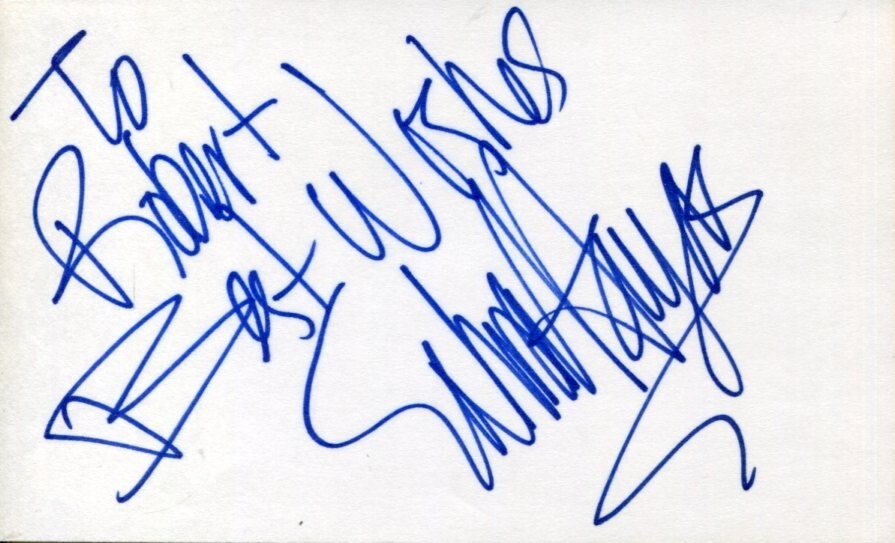 To
Robert
Best Wishes